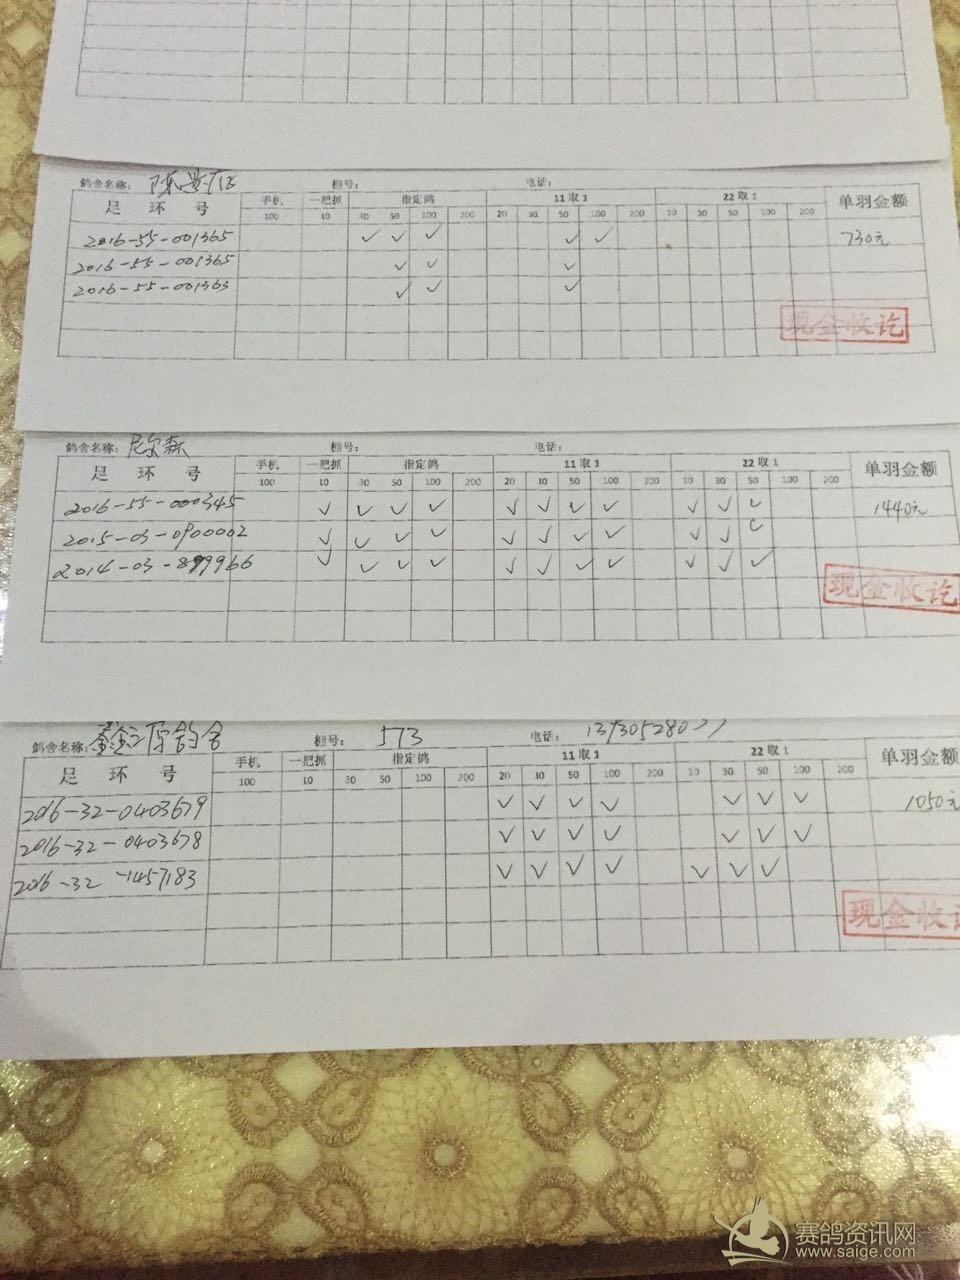 鸽舍名称： 棚号： 电话：
足 环 号 手机 一把抓 指定鸽 11取1 22取1 单羽金额
100 10 30 50 100 200 20 10 50 100 200 10 30 50 100 200
2016-55-001365 ✓ ✓ ✓ ✓ ✓ 730元
2016-55-001365 ✓ ✓ ✓
2016-55-001363 ✓ ✓ ✓
现金收讫
鸽舍名称： 尼尔森 棚号： 电话：
足 环 号 手机 一把抓 指定鸽 11取1 22取1 单羽金额
100 10 30 50 100 200 20 10 50 100 200 10 30 50 100 200
2016-55-000345 ✓ ✓ ✓ ✓ ✓ ✓ ✓ ✓ ✓ ✓ ✓ 1440元
2015-03-0900002 ✓ ✓ ✓ ✓ ✓ ✓ ✓ ✓ ✓ ✓ ✓
2014-03-899966 ✓ ✓ ✓ ✓ ✓ ✓ ✓ ✓ ✓ ✓ ✓
现金收讫
鸽舍名称： 棚号： 573 电话：
足 环 号 手机 一把抓 指定鸽 11取1 22取1 单羽金额
100 10 30 50 100 200 20 10 50 100 200 10 30 50 100 200
2016-32-0403679 ✓ ✓ ✓ ✓ ✓ ✓ ✓ 1050元
2016-32-0403678 ✓ ✓ ✓ ✓ ✓ ✓ ✓
2016-32-1457183 ✓ ✓ ✓ ✓ ✓ ✓ ✓
现金收讫
赛鸽资讯网
www.saige.com